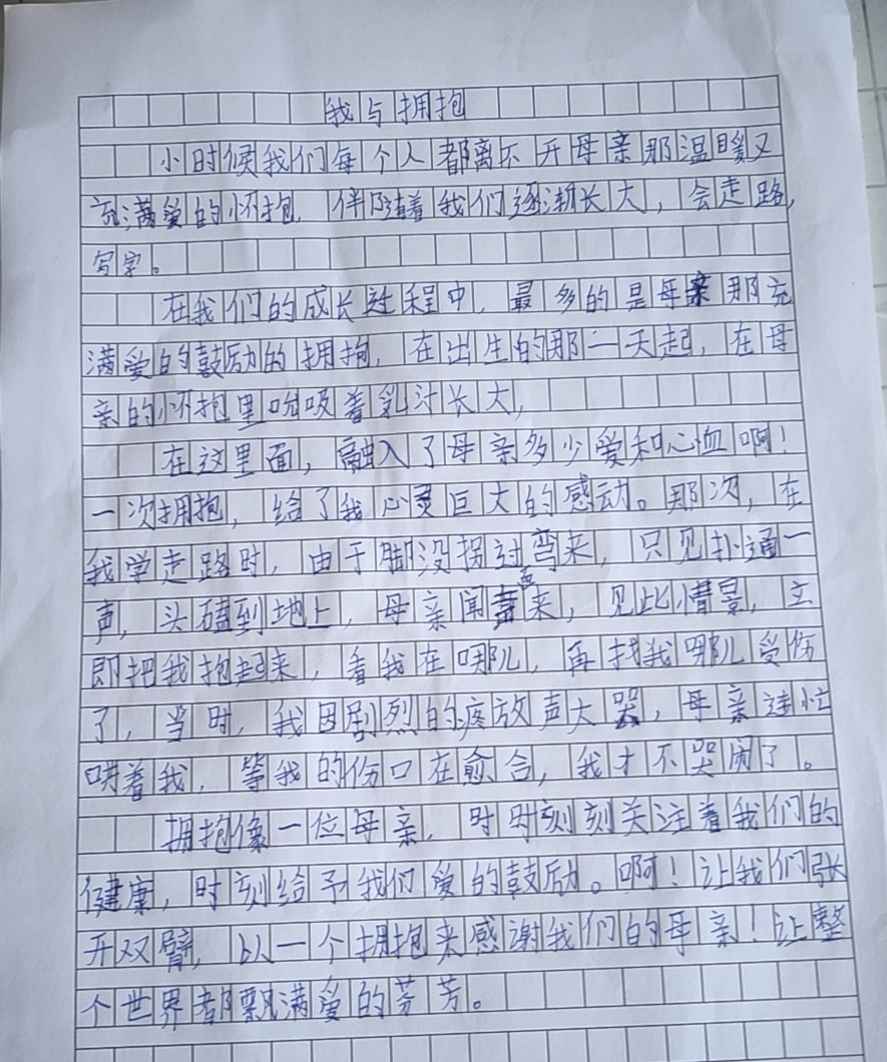 我与拥抱
小时候我们每个人都离不开母亲那温暖又
充满爱的怀抱，伴随着我们逐渐长大，会走路，
写字。
在我们的成长过程中，最多的是母亲那充
满爱的鼓励的拥抱，在出生的那一天起，在母
亲的怀抱里吮吸着乳汁长大，
在这里面，融入了母亲多少爱和心血啊！
一次拥抱，给了我心灵巨大的感动。那次，在
我学走路时，由于脚没拐过弯来，只见扑通一
声，头磕到地上，母亲闻声而来，见此情景，立
即把我抱起来，看我在哪儿，再找我哪儿受伤
了，当时，我因剧烈的疼放声大哭，母亲连忙
哄着我，等我的伤口在愈合，我才不哭闹了。
拥抱像一位母亲，时时刻刻关注着我们的
健康，时刻给予我们爱的鼓励。啊！让我们张
开双臂，以一个拥抱来感谢我们的母亲！让整
个世界都飘满爱的芬芳。